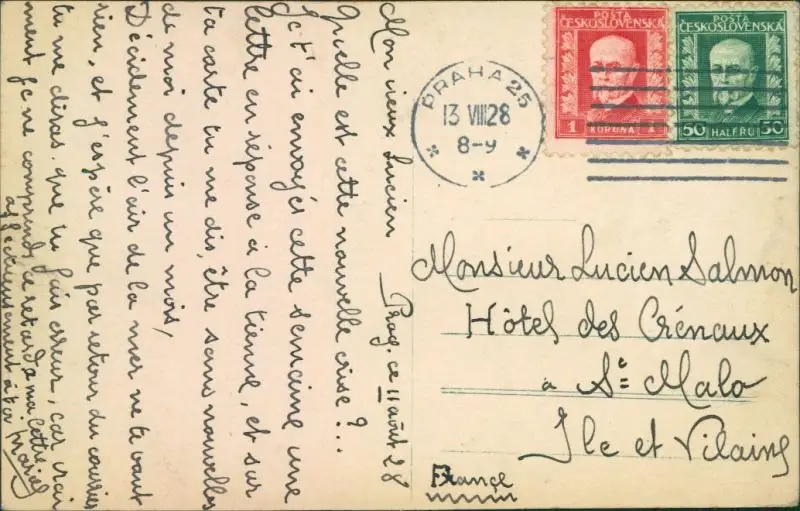 Mon vieux Lucien Prag, ce 11 août 28
Quelle est cette nouvelle crise ?...
Je t'ai envoyé cette semaine une
lettre en réponse à la tienne, et sur
ta carte tu me dis, être sans nouvelles
de moi depuis un mois,
Décidement l'air de la mer ne te vaut
rien, et j'espère que par retour du courrier
tu me diras que tu fais erreur, car vrai
ment je ne comprends ce retard de ma lettre
affectueusement à toi
POSTA
ČESKOSLOVENSKÁ
1 KORUNA 1
POSTA
ČESKOSLOVENSKÁ
50 HALÉŘŮ 50
PRAHA 25
13 VIII 28
8-9
Monsieur Lucien Salmon
Hôtel des Crénaux
à St Malo
Ile et Vilaine
France